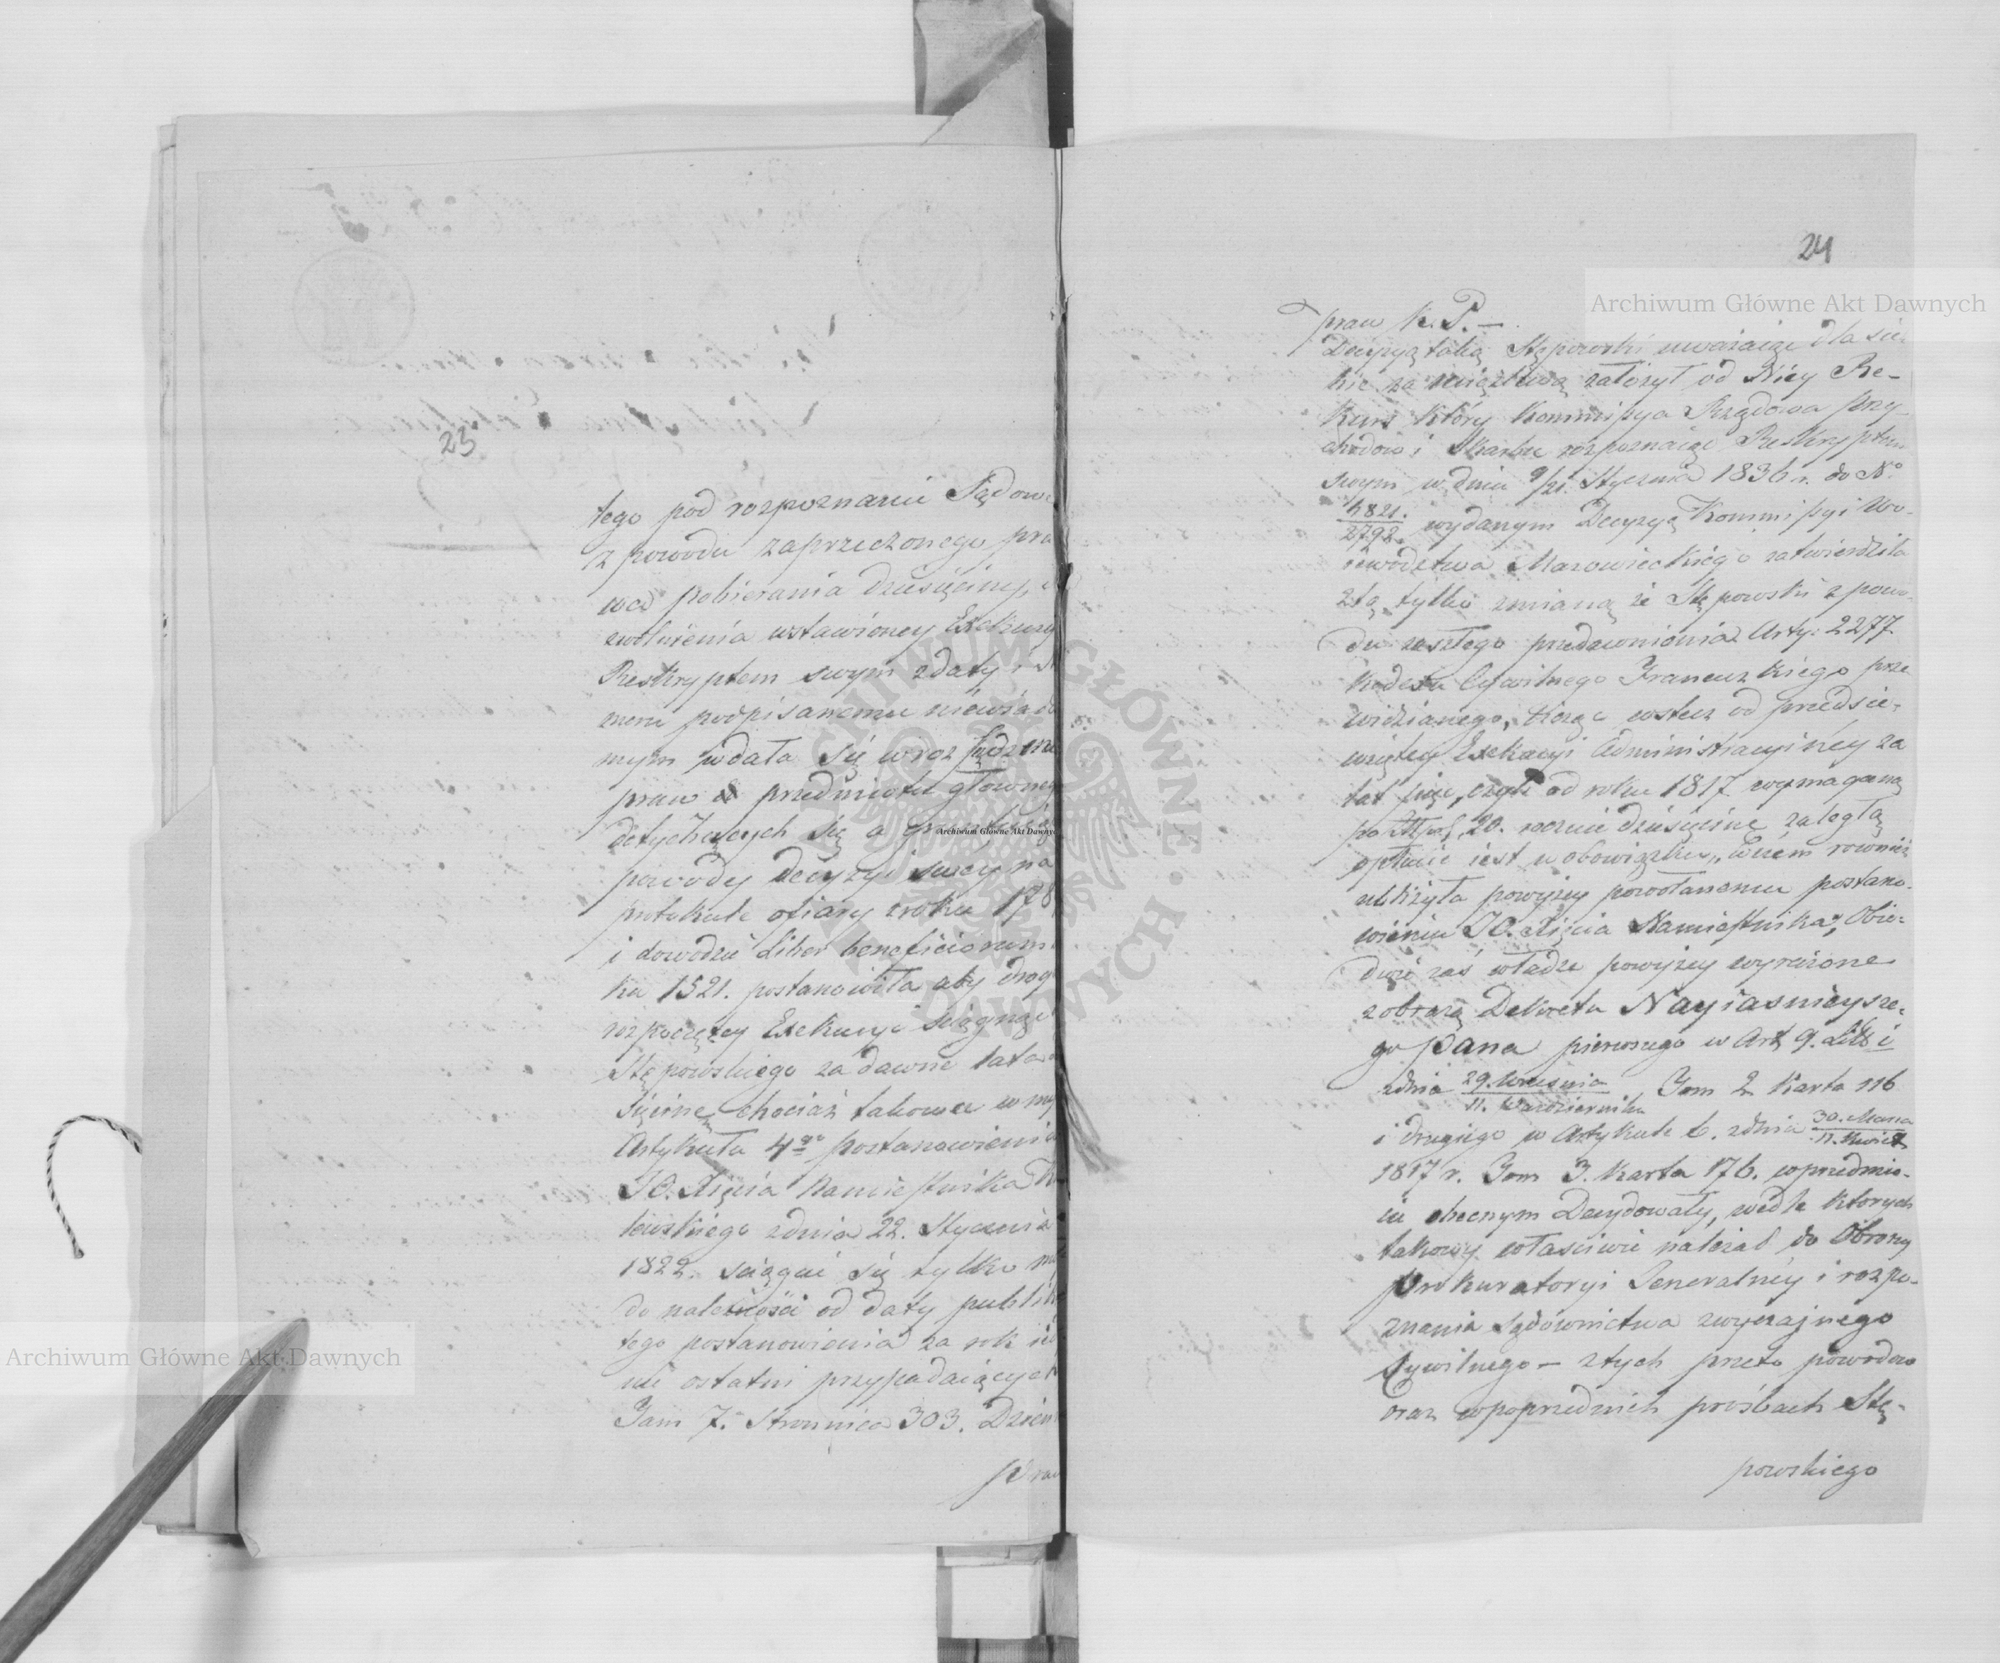 23
tego pod rozpoznanie Sądow
z powodu zaprzeczonego pra
wa pobierania dziesięciny,
zwolnienia wstawioney Exekucy
Reskryptem swym z daty i N
meru podpisanemu niewiado
mym wdała się wroz sądzenie
praw do przedmiotu główneg
dotychczących się a
powody decyzyi swey na
protokule ofiary z roku 178
i dowodzie Liber beneficiorum
ku 1521. postanowiła aby drog
rozpoczętey Exekucyi ściągnąć
Stępowskiego za dawne lata
sięcinę chociaż takowa w my
Artykułu 4go postanowienia
JO. Xięcia Namiestnika
lewskiego z dnia 22. Stycznia
1822. ściągać się tylko
do należności od daty publik
tego postanowienia za rok
ni ostatni przypadaiących
Tom 7. Stronnica 303. Dzien
Praw
24
praw K. P. —
Decyzyą taką Stępowski uważaiąc dla sie-
bie za uciążliwą założył od Niey Re-
kurs który Kommissya Rządowa Przy-
chodow i Skarbu rozpoznaiąc Reskryptem
swym w dniu 9/21. Stycznia 1836 r. do No
4821./2792. wydanym Decyzyę Kommissyi Wo-
iewodztwa Mazowieckiego zatwierdziła
z tą tylko zmianą że Stępowski z powo-
du zaszłego przedawnienia Arty: 2277
Kodexu Cywilnego Francuzkiego prze
widzianego, licząc wstecz od przedsię-
wziętey Exekucyi Administracyiney za
lat pięc, czyli od roku 1817 wymaganą
po Złp. 20. rocznie dziesięcinę zaległą
opłacić iest w obowiązku, w czem rownież
ubliżyła powyżey powołanemu postano-
wieniu JO. Xięcia Namiestnika, Obie-
dwie zaś władze powyżey wyrażone
z obrazą Dekretu Nayiaśnieysze-
go Pana pierwszego w Art 9. Litt i
z dnia 29. Września/11. Października Tom 2 Karta 116
i drugiego w Artykule 6. z dnia 30. Marca/11. Kwiet
1817 r. Tom 3. Karta 176. w przedmio-
cie obecnym Decydowały, wedle których
takowy właściwie należał do Obrony
Prokuratoryi Generalney i rozpo-
znania Sądownictwa zwyczajnego
Cywilnego — z tych przeto powodow
oraz w poprzednich prośbach Stę-
powskiego
Archiwum Główne Akt Dawnych
Archiwum Główne Akt Dawnych
Archiwum Główne Akt Dawnych
ARCHIWUM GŁÓWNE AKT DAWNYCH